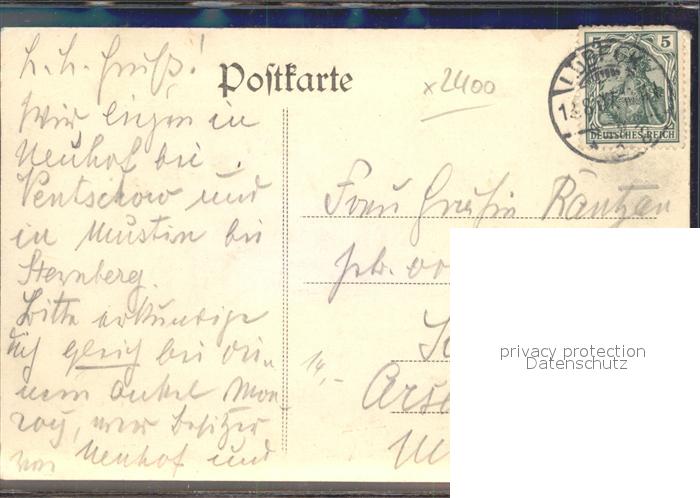 h. h. Gruß!
Postkarte
x2400
Wir liegen in
Neuhof bei
Ventschow und
in Mustin bei
Sternberg.
Bitte erkundige
dich gleich bei dei-
nem Onkel Mon-
roy, wer Besitzer
von Neuhof und
5 5
LÜBECK
DEUTSCHES REICH
Frau Gräfin Rantzau
geb. vo
14,-
Arse
privacy protection
Datenschutz